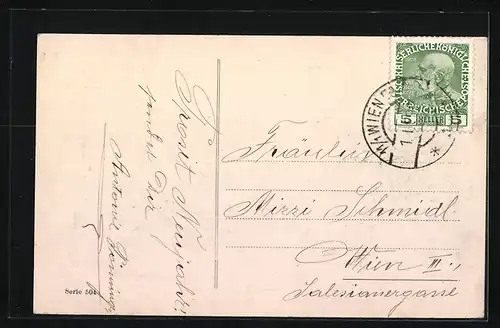 Prosit Neujahr!
sendet Dir
Antonie
Serie 504
KAISERLICHE KÖNIGLICHE ÖSTERREICHISCHE
5 HELLER 5
1/1 WIEN
Fräulein
Mizzi Schmidl
Wien III.,
Salesianergasse